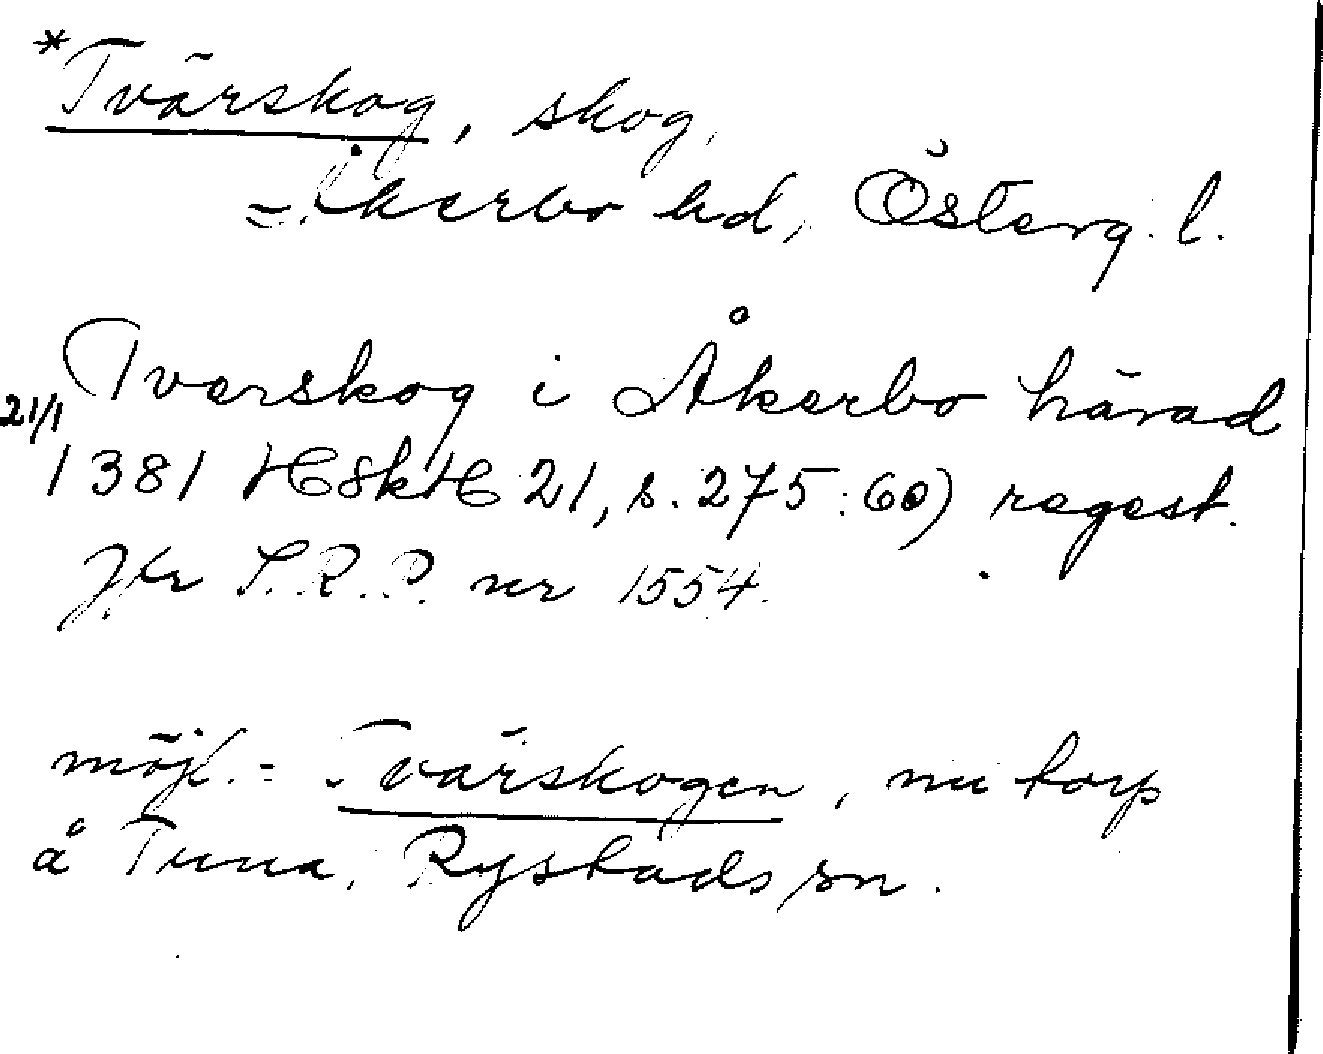 *Tvärskog, skog,
Åkerbo hd, Österg. l.
Tvarskog i Åkerbo härad
21/1 1381 HSkH 21, s. 275: 60) regest.
Jfr S.R.P. nr 1554.
möjl. = Tvärskogen, nu torp
å Tuna, Rystads sn.